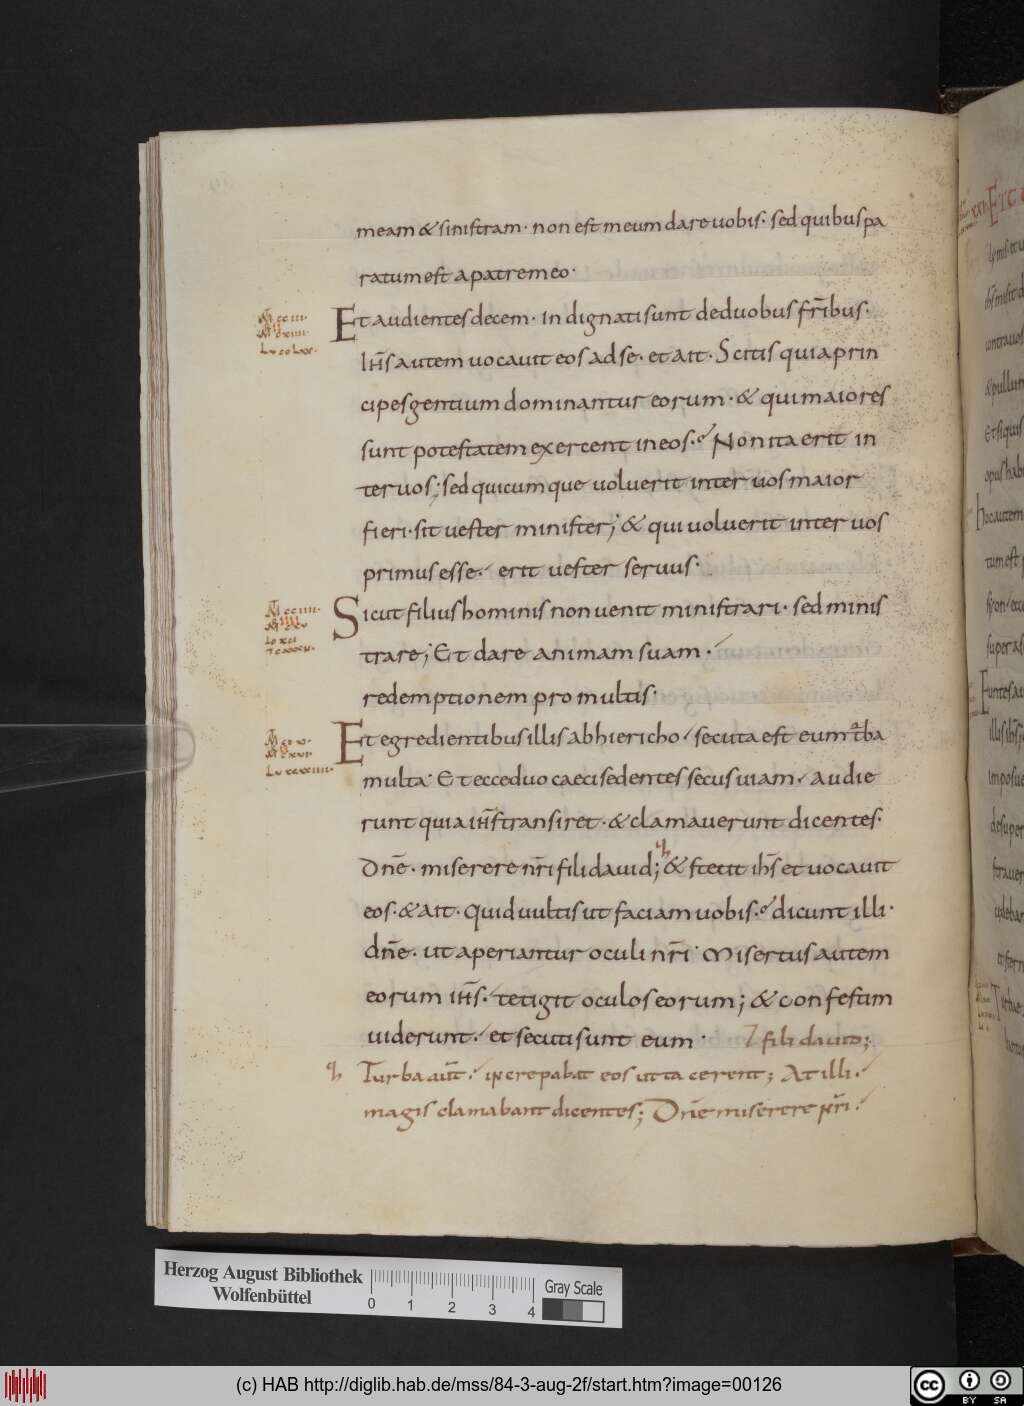 meam & sinistram· non est meum dare uobis· sed quibus pa
ratum est a patre meo·
Et audientes decem· indignati sunt de duobus fr̄ibus·
Ih̄s autem uocauit eos ad se· et ait· Scitis quia prin
cipes gentium dominantur eorum·& qui maiores
sunt potestatem exercent in eos· Non ita erit in
ter uos; sed quicumque uoluerit inter uos maior
fieri· sit uester minister; & qui uoluerit inter uos
primus esse· erit uester seruus·
Sicut filius hominis non uenit ministrari· sed minis
trare; Et dare animam suam·
redemptionem pro multis·
Et egredientibus illis ab hiericho· secuta est eum tba
multa· Et ecce duo caeci sedentes secus uiam· audie
runt quia ih̄s transiret·& clamauerunt dicentes·
Dn̄e· miserere nr̄i fili dauid; & stetit ih̄s et uocauit
eos·& ait· Quid uultis ut faciam uobis· dicunt illi·
dn̄e· ut aperiantur oculi nr̄i· Misertus autem
eorum ih̄s· tetigit oculos eorum; & confestim
uiderunt· et secuti sunt eum· fili dauid;
Turba aut̄· increpabat eos ut tacerent; At illi·
magis clamabant dicentes; Dn̄e miserere nr̄i·
Herzog August Bibliothek
Wolfenbüttel
0 1 2 3 4
Gray Scale
(c) HAB http://diglib.hab.de/mss/84-3-aug-2f/start.htm?image=00126
cc BY SA